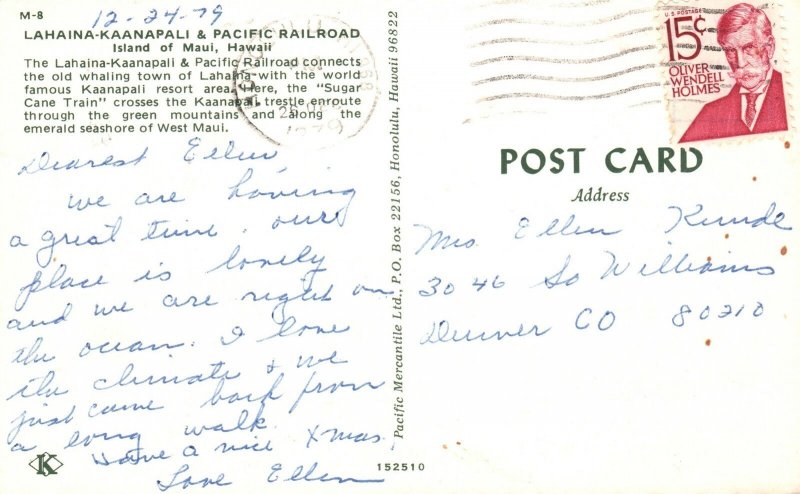 M-8
12-24-79
LAHAINA-KAANAPALI & PACIFIC RAILROAD
Island of Maui, Hawaii
The Lahaina-Kaanapali & Pacific Railroad connects
the old whaling town of Lahaina with the world
famous Kaanapali resort area. Here, the "Sugar
Cane Train" crosses the Kaanapali trestle enroute
through the green mountains and along the
emerald seashore of West Maui.
Dearest Ellen,
we are having
a great time. our
place is lovely
and we are right on
the ocean. I love
the climate & we
just came back from
a long walk.
Have a nice Xmas,
Love Ellen
K
Pacific Mercantile Ltd., P.O. Box 22156, Honolulu, Hawaii 96822
152510
U.S. POSTAGE
15¢
OLIVER
WENDELL
HOLMES
POST CARD
Address
Mrs Ellen
3046 So Williams
Denver CO 80210